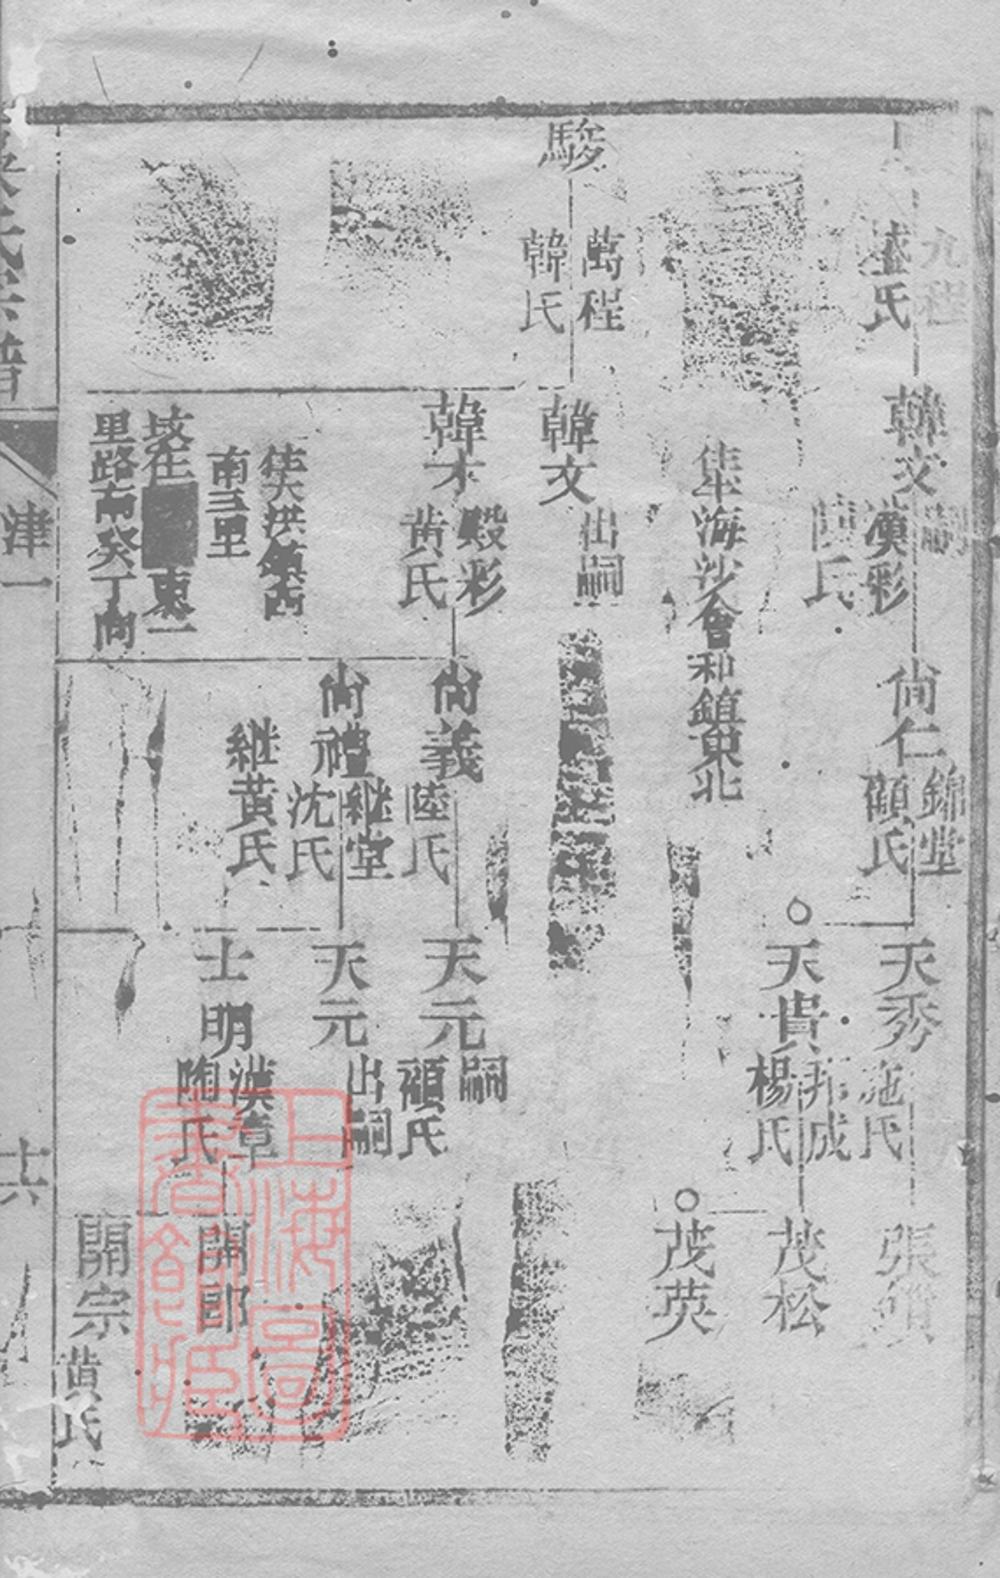 九程
盛氏
韓文
嗣
漢彩
陳氏
尚仁
錦堂
顧氏
天秀
施氏
張
葬海沙會和鎮東北
○天貴
邦成
楊氏
茂松
○茂英
駿
萬程
韓氏
韓文
出嗣
韓才
殿彩
黃氏
尚義
陸氏
天元
嗣
顧氏
尚禮
継堂
沈氏
継黃氏
天元
出嗣
洪鎮西
南三里
坟在 東一
里路南癸丁向
士明
漢章
陶氏
開郎
開宗
黃氏
氏宗譜
津一
十六
上海圖書館藏